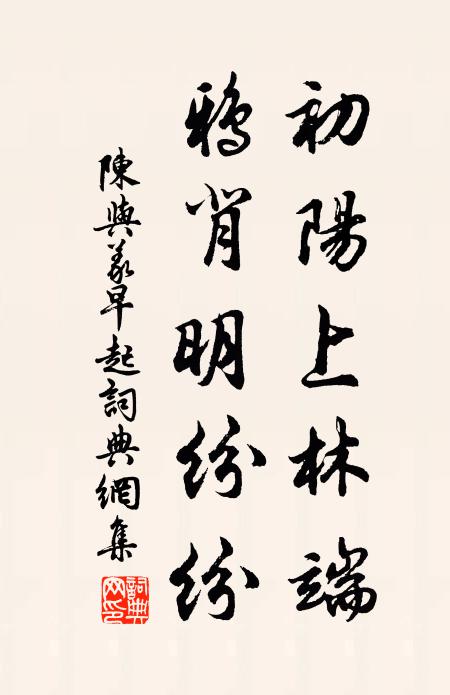 初陽上林端
鴉背明紛紛
陳與義早起詞典網集
詞典網印